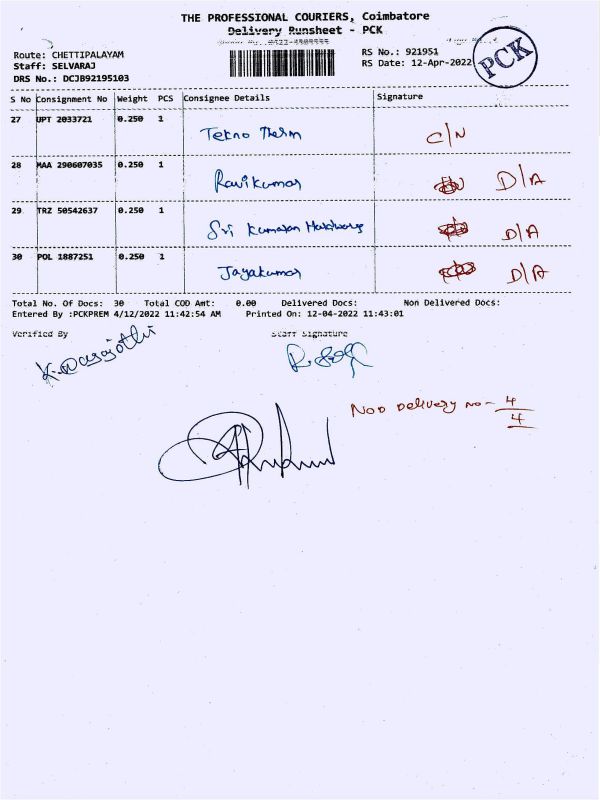 THE PROFESSIONAL COURIERS, Coimbatore
Delivery Runsheet - PCK
Route: CHETTIPALAYAM
Staff: SELVARAJ
DRS No.: DCJB92195103
RS No.: 921951
RS Date: 12-Apr-2022
PCK
S No Consignment No Weight PCS Consignee Details Signature
27 UPT 2033721 0.250 1 Tekno Therm C/N
28 MAA 290607035 0.250 1 Ravikumar D/A
29 TRZ 50542637 0.250 1 Sri Kumaran D/A
30 POL 1887251 0.250 1 Jayakumar D/A
Total No. Of Docs: 30 Total COD Amt: 0.00 Delivered Docs: Non Delivered Docs:
Entered By :PCKPREM 4/12/2022 11:42:54 AM Printed On: 12-04-2022 11:43:01
Verified By Staff Signature
Non Delivery no - 4/4